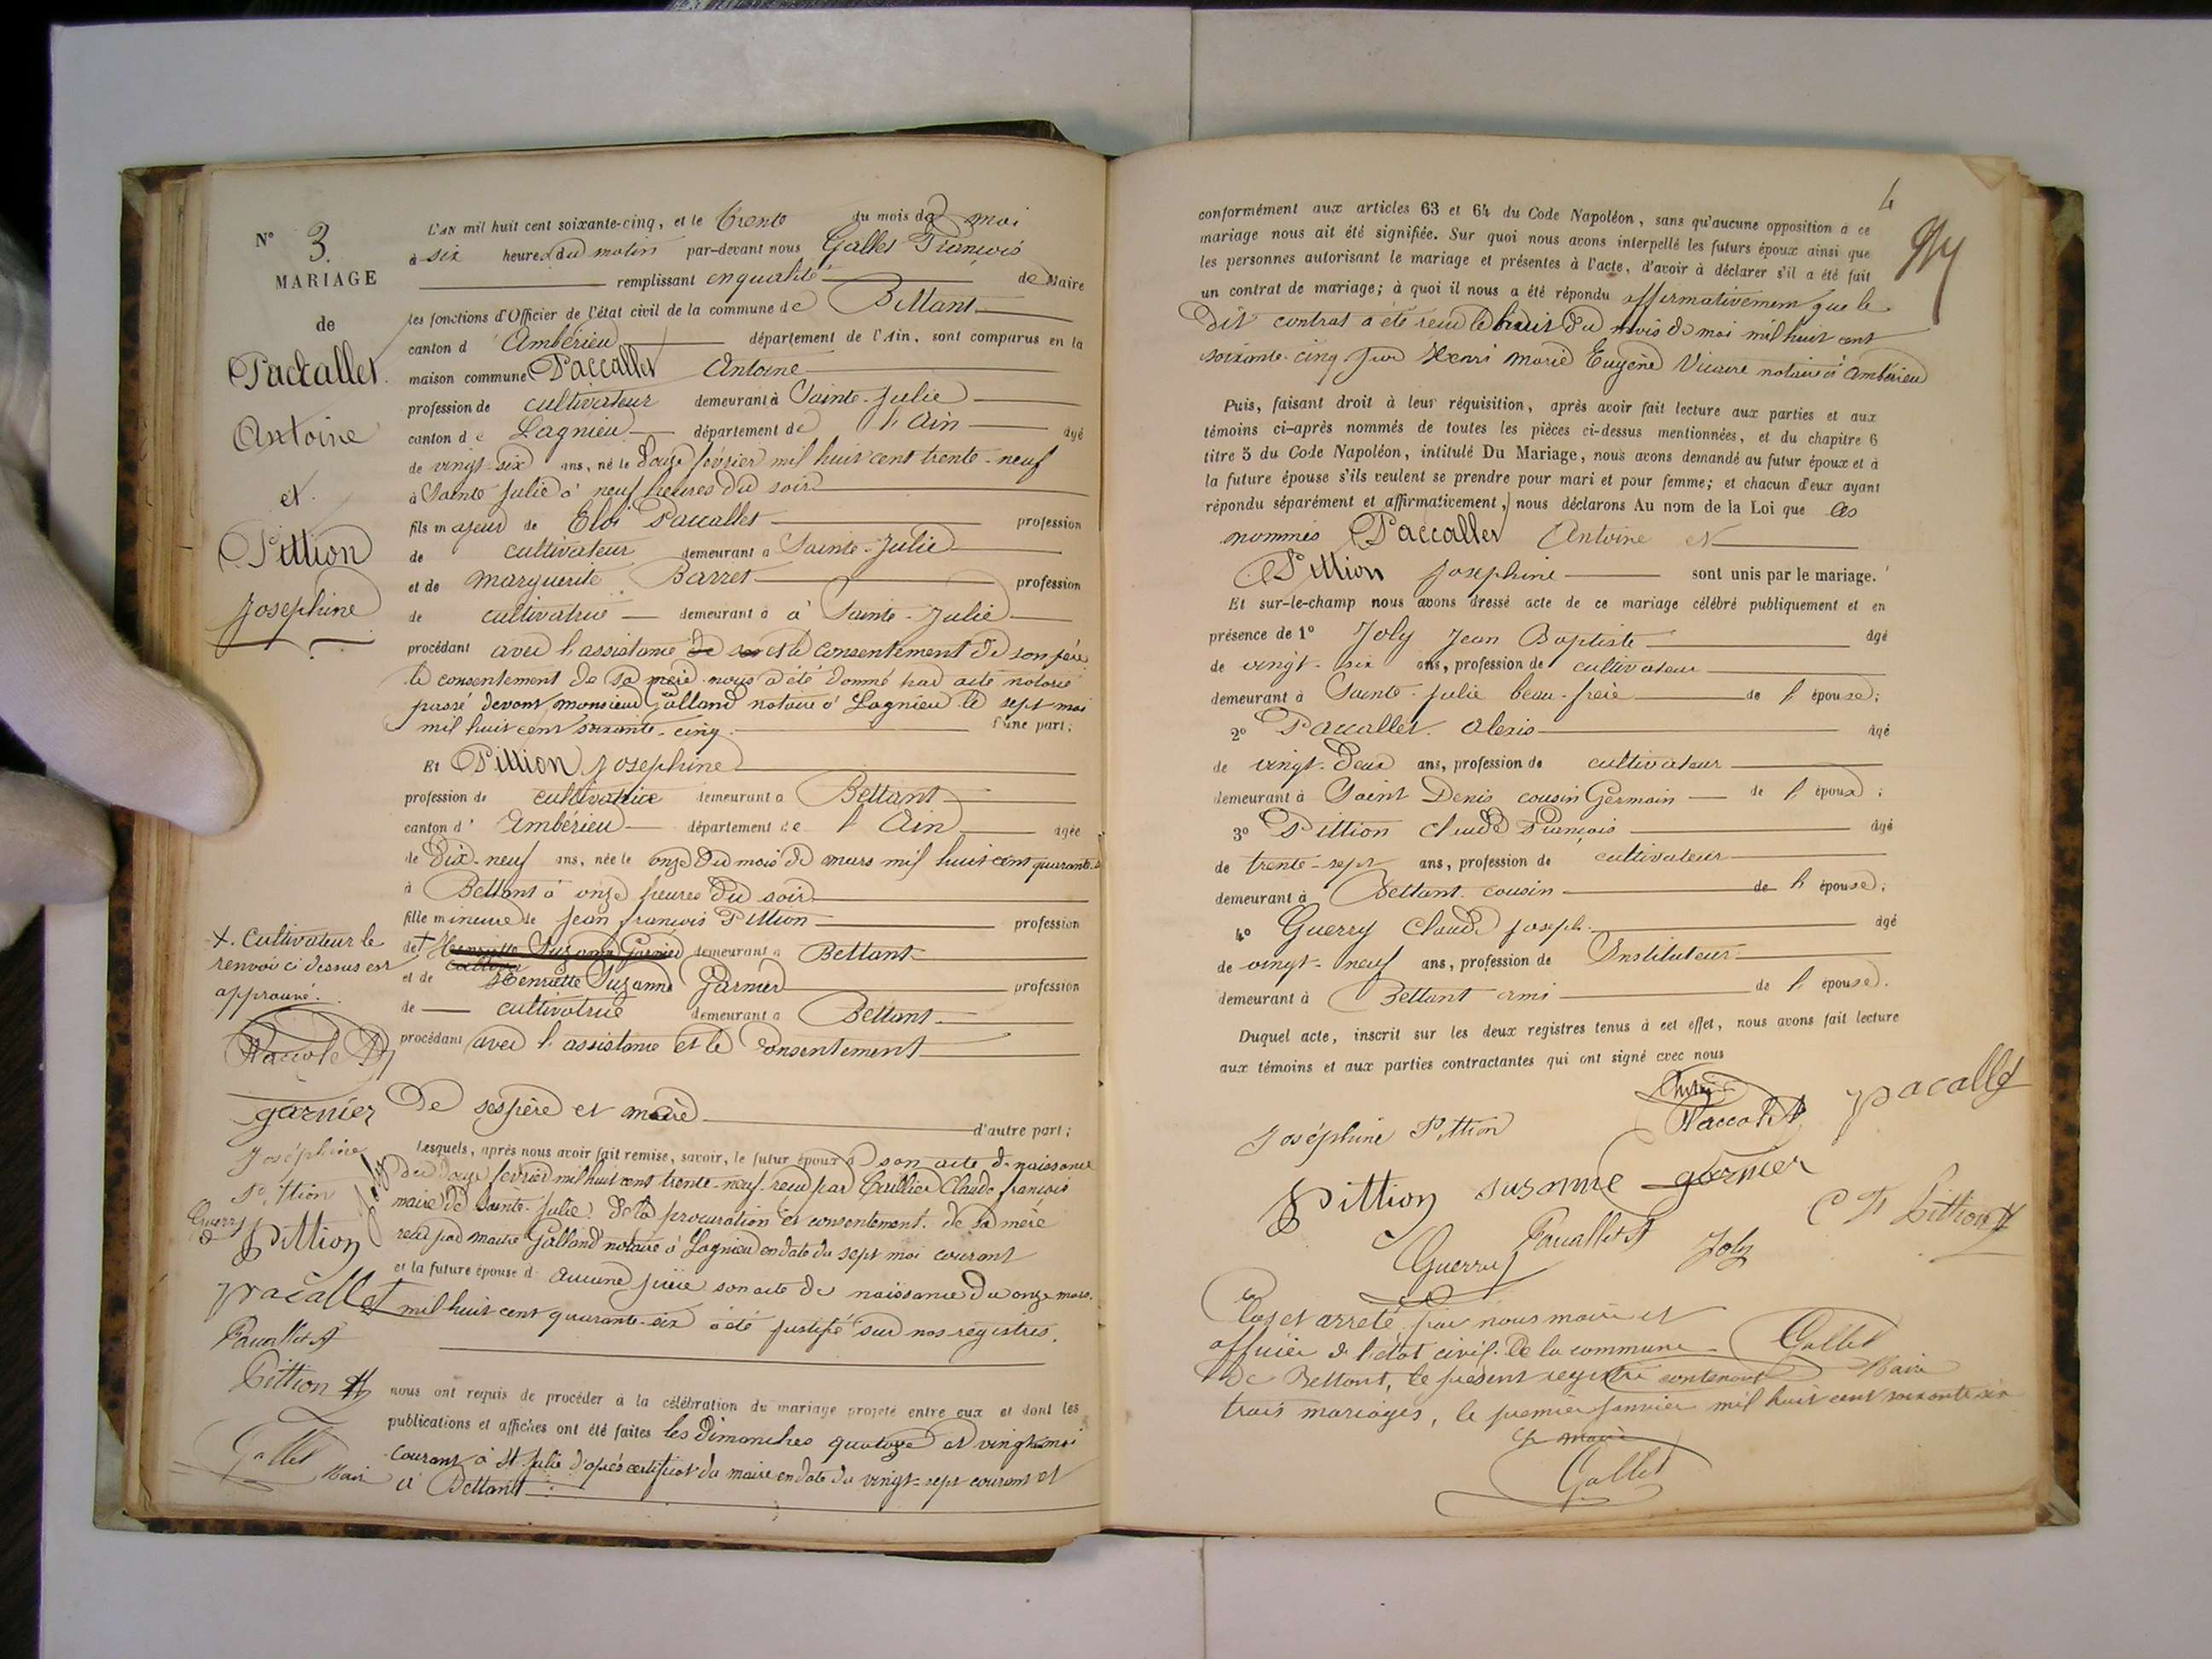 N° 3.
MARIAGE
de
Paccallet
Antoine
et
Pittion
Josephine
L'AN mil huit cent soixante-cinq, et le trente du mois de mai
à six heures du matin par-devant nous Gallet François
remplissant en qualité de Maire
les fonctions d'Officier de l'état civil de la commune de Bettant
canton d'Ambérieu département de l'Ain, sont comparus en la
maison commune Paccallet Antoine
profession de cultivateur demeurant à Sainte-Julie
canton de Lagnieu département de l'Ain âgé
de vingt-six ans, né le douze février mil huit cent trente-neuf
à Sainte Julie à neuf heures du soir
fils majeur de Eloi Paccallet profession
de cultivateur demeurant à Sainte-Julie
et de marguerite Barret profession
de cultivatrice demeurant à à Sainte-Julie
procédant avec l'assistance de ses et le consentement de son père
le consentement de sa mère nous a été donné par acte notarié
passé devant monsieur Galland notaire à Lagnieu le sept mai
mil huit cent soixante-cinq. d'une part;
Et Pittion Josephine
profession de cultivatrice demeurant à Bettant
canton d'Ambérieu département de l'Ain âgée
de dix-neuf ans, née le onze du mois de mars mil huit cent quarante-six
à Bettant à onze heures du soir
fille mineure de Jean françois Pittion profession
de + Henriette Suzanne Garnier demeurant à Bettant
et de Henriette Suzanne Garnier profession
de cultivatrice demeurant à Bettant
procédant avec l'assistance et le consentement
de ses père et mère
d'autre part;
Lesquels, après nous avoir fait remise, savoir, le futur époux d son acte de naissance
du douze février mil huit cent trente-neuf reçu par Claude françois
maire de Sainte-Julie, de la procuration et consentement de sa mère
reçu par maitre Galland notaire à Lagnieu en date du sept mai courant
et la future épouse d aucune pièce son acte de naissance du onze mars
mil huit cent quarante-six a été justifié sur nos registres.
nous ont requis de procéder à la célébration du mariage projeté entre eux et dont les
publications et affiches ont été faites les dimanches quatorze et vingt-un mai
courant à St Julie d'après certificat du maire en date du vingt-sept courant et
à Bettant
+. Cultivateur le
renvoi ci dessus est
approuvé.
garnier
Joséphine
Pittion
Joly
Guerry
Pittion
pacallet
Paccallet A
Pittion
Gallet
Maire
4
conformément aux articles 63 et 64 du Code Napoléon, sans qu'aucune opposition à ce
mariage nous ait été signifiée. Sur quoi nous avons interpellé les futurs époux ainsi que
les personnes autorisant le mariage et présentes à l'acte, d'avoir à déclarer s'il a été fait
un contrat de mariage; à quoi il nous a été répondu affirmativement que le
dit contrat a été reçu le huit du mois de mai mil huit cent
soixante-cinq par Henri Marie Eugène Vicaire notaire à Ambérieu
Puis, faisant droit à leur réquisition, après avoir fait lecture aux parties et aux
témoins ci-après nommés de toutes les pièces ci-dessus mentionnées, et du chapitre 6
titre 5 du Code Napoléon, intitulé Du Mariage, nous avons demandé au futur époux et à
la future épouse s'ils veulent se prendre pour mari et pour femme; et chacun d'eux ayant
répondu séparément et affirmativement, nous déclarons Au nom de la Loi que les
nommés Paccallet Antoine et
Pittion Josephine sont unis par le mariage.
Et sur-le-champ nous avons dressé acte de ce mariage célébré publiquement et en
présence de 1° Joly Jean Baptiste âgé
de vingt-six ans, profession de cultivateur
demeurant à Sainte-Julie beau-frère de l'épouse;
2° Paccallet Alexis âgé
de vingt-deux ans, profession de cultivateur
demeurant à Saint Denis cousin Germain de l'époux;
3° Pittion Claude François âgé
de trente-sept ans, profession de cultivateur
demeurant à Bettant cousin de l'épouse;
4° Guerry Claude Joseph âgé
de vingt-neuf ans, profession de Instituteur
demeurant à Bettant ami de l'épouse.
Duquel acte, inscrit sur les deux registres tenus à cet effet, nous avons fait lecture
aux témoins et aux parties contractantes qui ont signé avec nous
Joséphine Pittion pacallet
Pittion suzanne garnier C F Pittion
Guerry Paccallet A Joly
Clos et arrêté par nous maire et
officier de l'état civil de la commune Gallet
de Bettant, le présent registre contenant Maire
trois mariages, le premier janvier mil huit cent soixante six
Le maire
Gallet